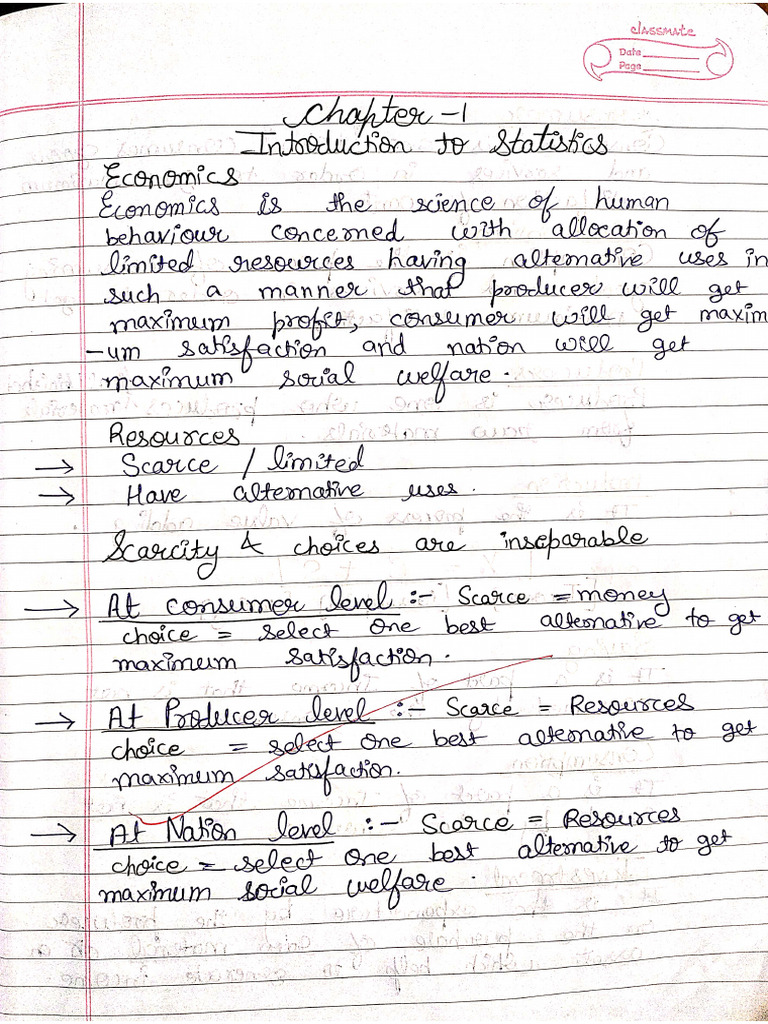 classmate
Date
Page
Chapter -1
Introduction to Statistics
Economics
Economics is the science of human
behaviour concerned with allocation of
limited resources having alternative uses in
such a manner that producer will get
maximum profit, consumer will get maxim
-um satisfaction and nation will get
maximum social welfare.
Resources
→ Scarce / limited
→ Have alternative uses.
Scarcity & choices are inseparable
→ At consumer level :- Scarce = money
choice = select one best alternative to get
maximum satisfaction.
→ At Producer level :- Scarce = Resources
choice = select one best alternative to get
maximum satisfaction.
→ At Nation level :- Scarce = Resources
choice = select one best alternative to get
maximum social welfare.